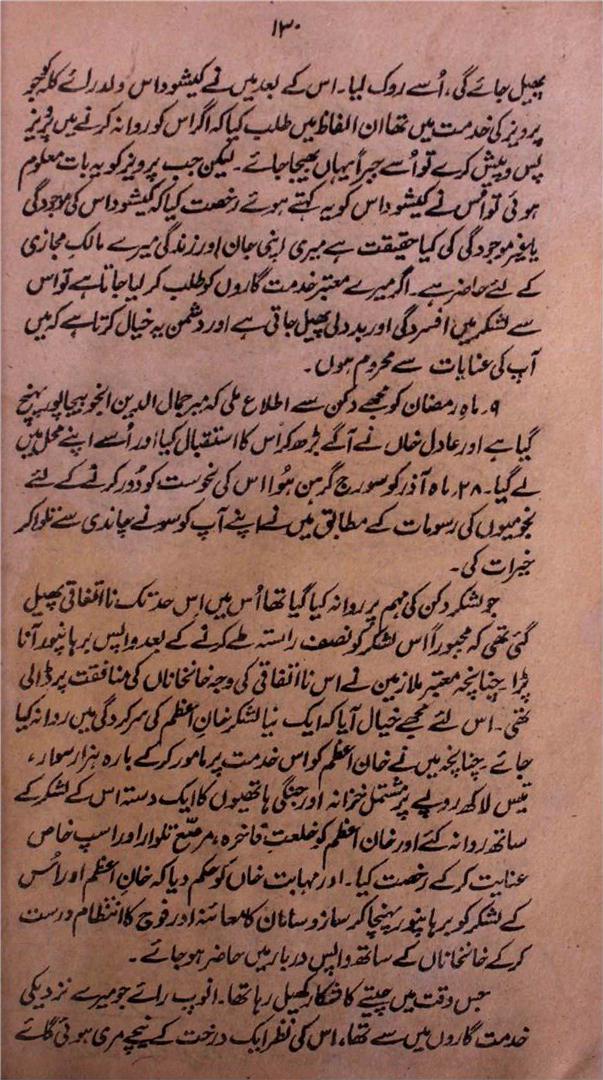 ۱۳۰
پھیل جائے گی، اُسے روک لیا۔ اس کے بعد میں نے کیشو داس ولد رائے کلہ کو جو
پرویز کی خدمت میں تھا ان الفاظ میں طلب کیا کہ اگر اس کو روانہ کرنے میں پرویز
پس و پیش کرے تو اُسے جبراً یہاں بھیجا جائے۔ لیکن جب پرویز کو یہ بات معلوم
ہوئی تو اُس نے کیشو داس کو یہ کہتے ہوئے رخصت کیا کہ کیشو داس کی موجودگی
یا غیر موجودگی کی کیا حقیقت ہے میری اپنی جان اور زندگی میرے مالکِ مجازی
کے لئے حاضر ہے۔ اگر میرے معتبر خدمت گاروں کو طلب کر لیا جاتا ہے تو اس
سے لشکر میں افسردگی اور بددلی پھیل جاتی ہے اور دشمن یہ خیال کرتا ہے کہ میں
آپ کی عنایات سے محروم ہوں۔
۹۔ ماہ رمضان کو مجھے دکن سے اطلاع ملی کہ میر جمال الدین انجو بیجاپور پہنچ
گیا ہے اور عادل خاں نے آگے بڑھ کر اس کا استقبال کیا اور اُسے اپنے محل میں
لے گیا۔ ۲۸۔ ماہ آذر کو سورج گرہن ہُوا اس کی نحوست کو دُور کرنے کے لئے
نجومیوں کی رسومات کے مطابق میں نے اپنے آپ کو سونے چاندی سے تلوا کر
خیرات کی۔
جو لشکر دکن کی مہم پر روانہ کیا گیا تھا اُس میں اس حد تک نااتفاقی پھیل
گئی تھی کہ مجبوراً اس لشکر کو نصف راستہ طے کرنے کے بعد واپس برہانپور آنا
پڑا چنانچہ معتبر ملازمین نے اس نااتفاقی کی وجہ خانخاناں کی منافقت پر ڈالی
تھی۔ اس لئے مجھے خیال آیا کہ ایک نیا لشکر خانِ اعظم کی سرکردگی میں روانہ کیا
جائے۔ چنانچہ میں نے خان اعظم کو اس خدمت پر مامور کر کے بارہ ہزار سوار،
تیس لاکھ روپے پر مشتمل خزانہ اور جنگی ہاتھیوں کا ایک دستہ اس کے لشکر کے
ساتھ روانہ کئے اور خان اعظم کو خلعتِ فاخرہ، مرصّع تلوار اور اسپ خاص
عنایت کر کے رخصت کیا۔ اور مہابت خاں کو حکم دیا کہ خانِ اعظم اور اُس
کے لشکر کو برہانپور پہنچا کر ساز و سامان کا معائنہ اور فوج کا انتظام درست
کر کے خانخاناں کے ساتھ واپس دربار میں حاضر ہو جائے۔
جس وقت میں چیتے کا شکار کھیل رہا تھا۔ انوپ رائے جو میرے نزدیکی
خدمت گاروں میں سے تھا، اس کی نظر ایک درخت کے نیچے مری ہوئی گائے